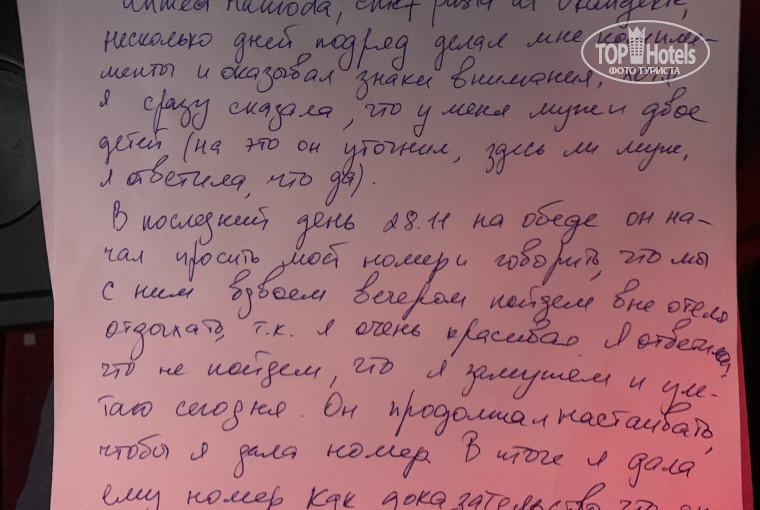 несколько дней подряд делал мне компли-
менты и оказывал знаки внимания, хотя
я сразу сказала, что у меня муж и двое
детей (на это он уточнил, здесь ли муж,
я ответила, что да).
В последний день 28.11 на обеде он на-
чал просить мой номер и говорить, что мы
с ним вдвоем вечером пойдем вне отеля
отдыхать, т.к. я очень красивая. Я ответила,
что не пойдем, что я замужем и уле-
таю сегодня. Он продолжал настаивать,
чтобы я дала номер. В итоге я дала
ему номер как доказательство, что
TOP Hotels
ФОТО ТУРИСТА